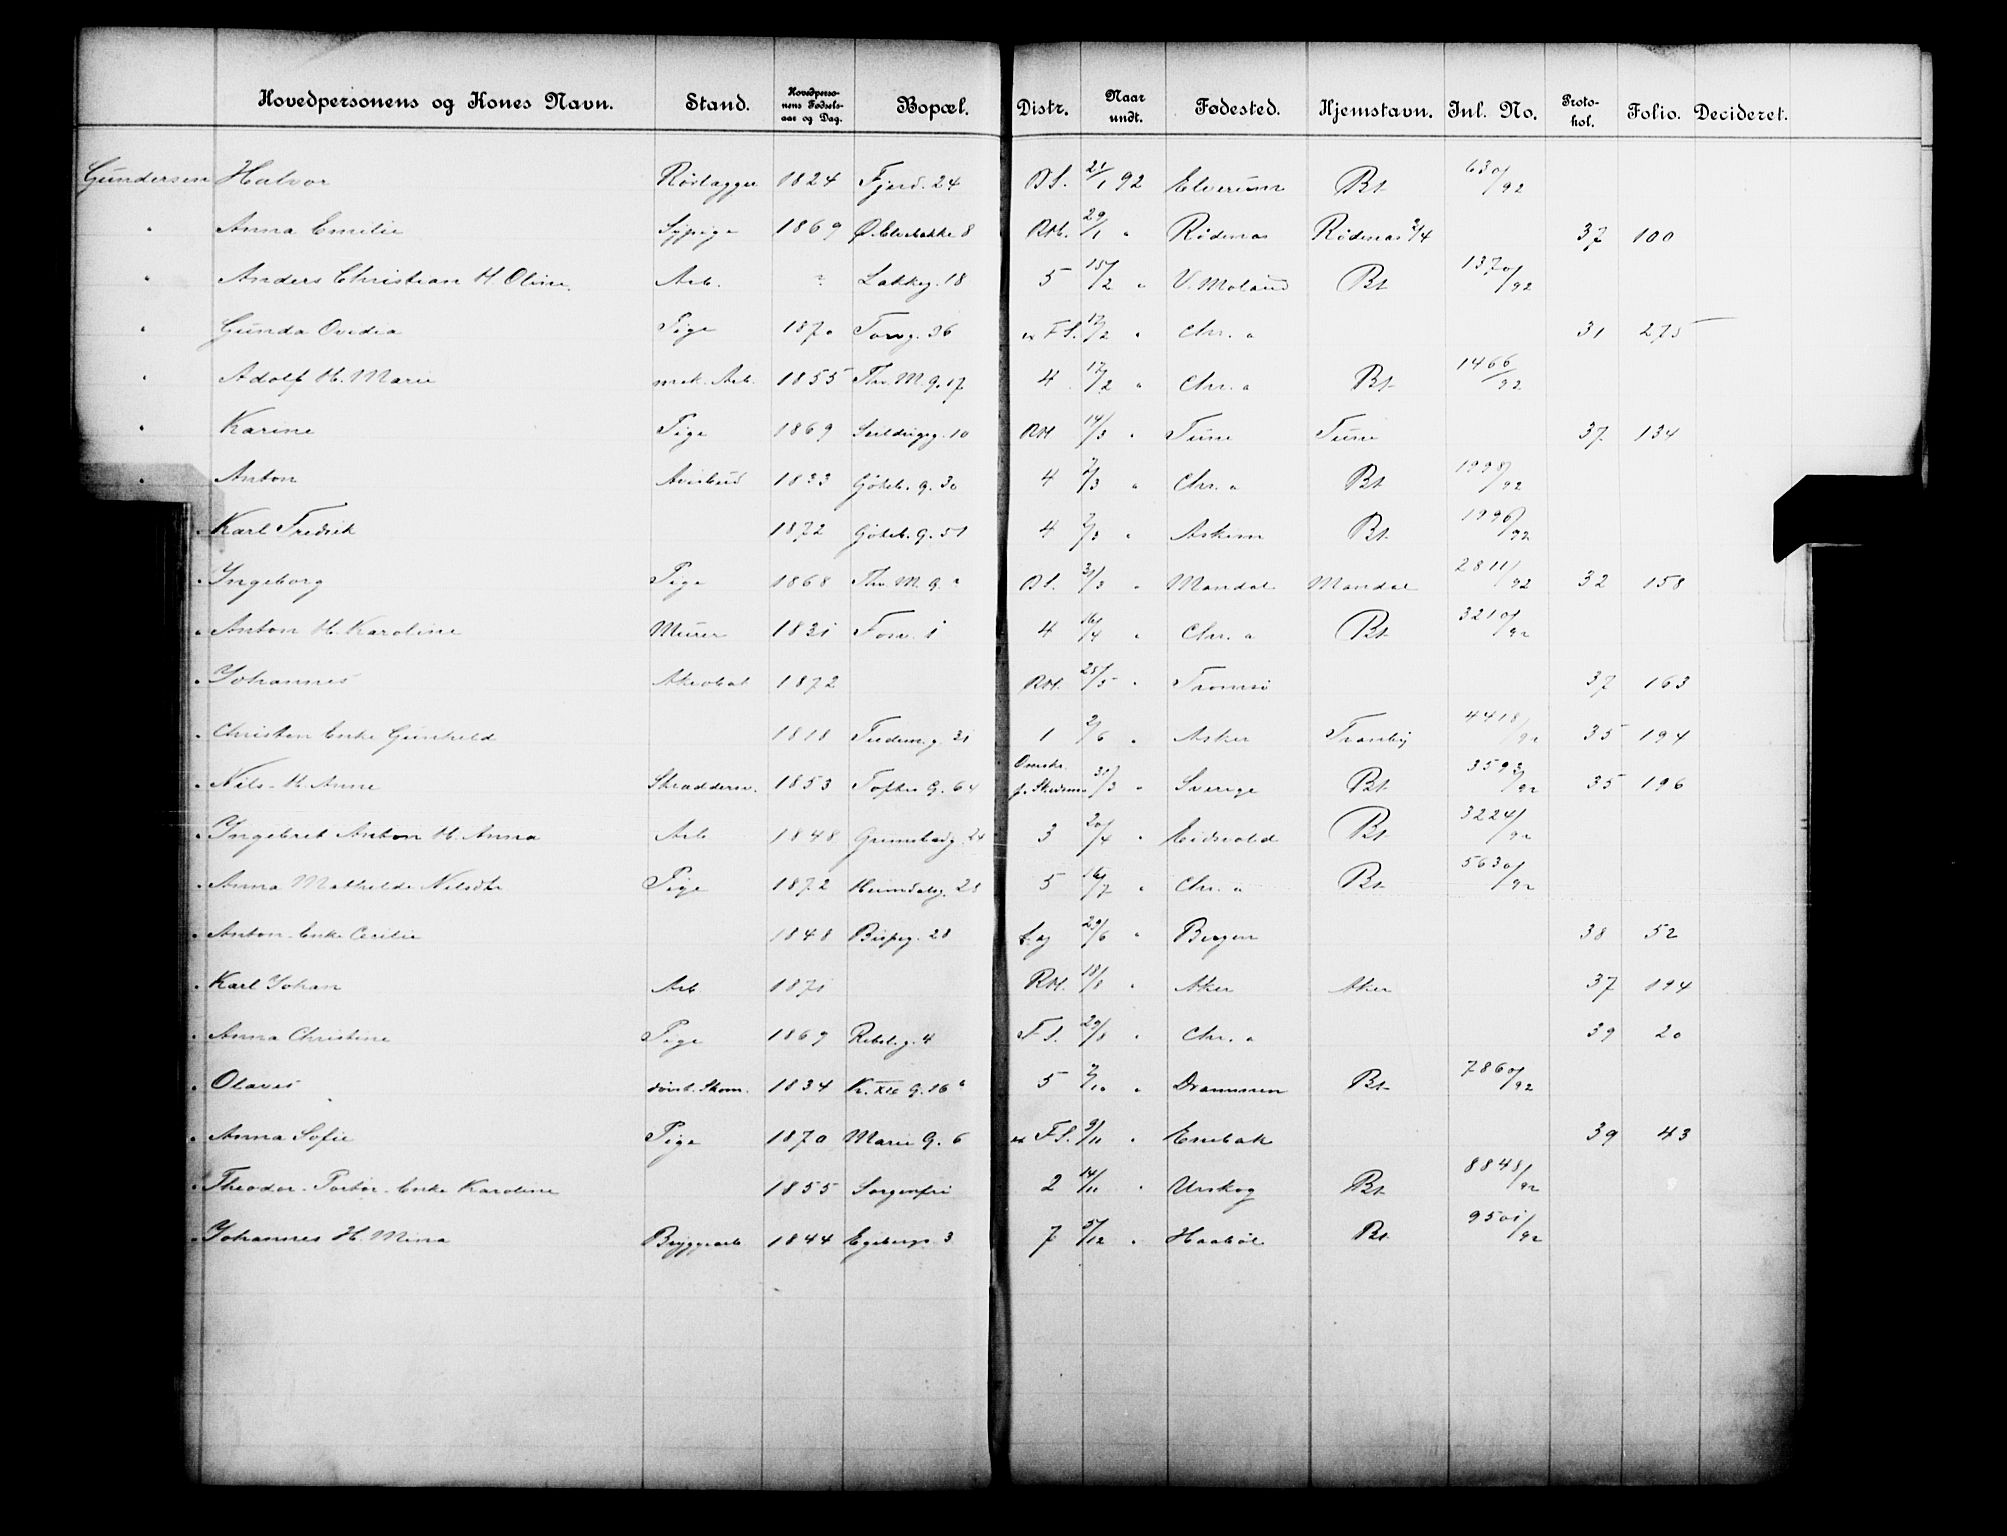 Hovedpersonens og Kones Navn. Stand. Hovedperso-nens Fødsels-aar og Dag. Bopæl. Distr. Naar undt. Fødested. Hjemstavn. Inl. No. Proto-kol. Folio. Decideret.
Gundersen Halvor 1824 Fjerd. 24 21/1 92 Elverum Bt 630/92
" Anna Emilie Sypige 1869 Ø. Elvebakke 8 29/1 " Rødenæs Rødenæs 37 100
" Anders Christian H. Oline Arb. Lakkeg. 18 5 15/2 " V. Moland Bt 1370/92
" Gunda Ovedia Pige 1870 Torvg. 36 F.S. 12/2 " Chr.a 31 275
" Adolf H. Marie mek. Arb. 1855 Thv. M. G. 17 4 17/2 " Chr.a Bt 1466/92
" Karine Pige 1869 Seildugsg. 10 14/3 " Tune Tune 37 134
" Anton Avisbud 1833 Gøteb. G. 30 4 2/3 " Chr.a Bt 1998/92
" Karl Fredrik 1872 Gøteb. G. 51 4 2/3 " Askim Bt 1996/92
" Ingeborg Pige 1868 Thv. M. G. 31/3 " Mandal Mandal 2811/92 32 158
" Anton H. Karoline Murer 1831 4 16/4 " Chr.a Bt 3210/92
" Johannes Akrobat 1872 25/5 " Tromsø 37 163
" Christen Enke Gunhild 1818 Fredensg. 31 1 2/6 " Asker Tranby 4418/92 35 194
" Nils - H. Anne Skrædders. 1853 Toftes G. 64 31/3 " Sverige Bt 3593/92 35 196
" Ingebret Anton H. Anna Arb 1848 24 3 20/4 " Eidsvold Bt 3224/92
" Anna Mathilde Nilsdtr Pige 1872 Heimdalsg. 25 5 16/7 " Chr.a Bt 5630/92
" Anton - Enke Cecilie 1848 Bispeg. 28 29/6 " Bergen 38 52
" Karl Johan Arb 1871 18/8 " Aker Aker 37 194
" Anna Christine Pige 1869 Rebslg. 4 F.S. 29/8 " Chr.a 39 20
" Olaves Skom. 1834 Kr. XII G. 16 5 " Drammen Bt 7860/92
" Anna Sofie Pige 1870 Marie G. 6 F.S. 9/11 " Enebak 39 43
" Theodor - Enke Karoline 1855 Sorgenfri 2 14/11 " Urskog Bt 8848/92
" Johannes H. Mina Bryggearb 1844 Egebergs 3 7 5/12 " Haabøl Bt 9501/92